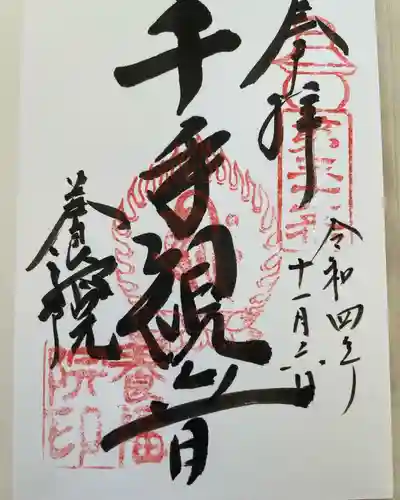 奉拝
令和四年
十一月二六日
千手観音
養福院